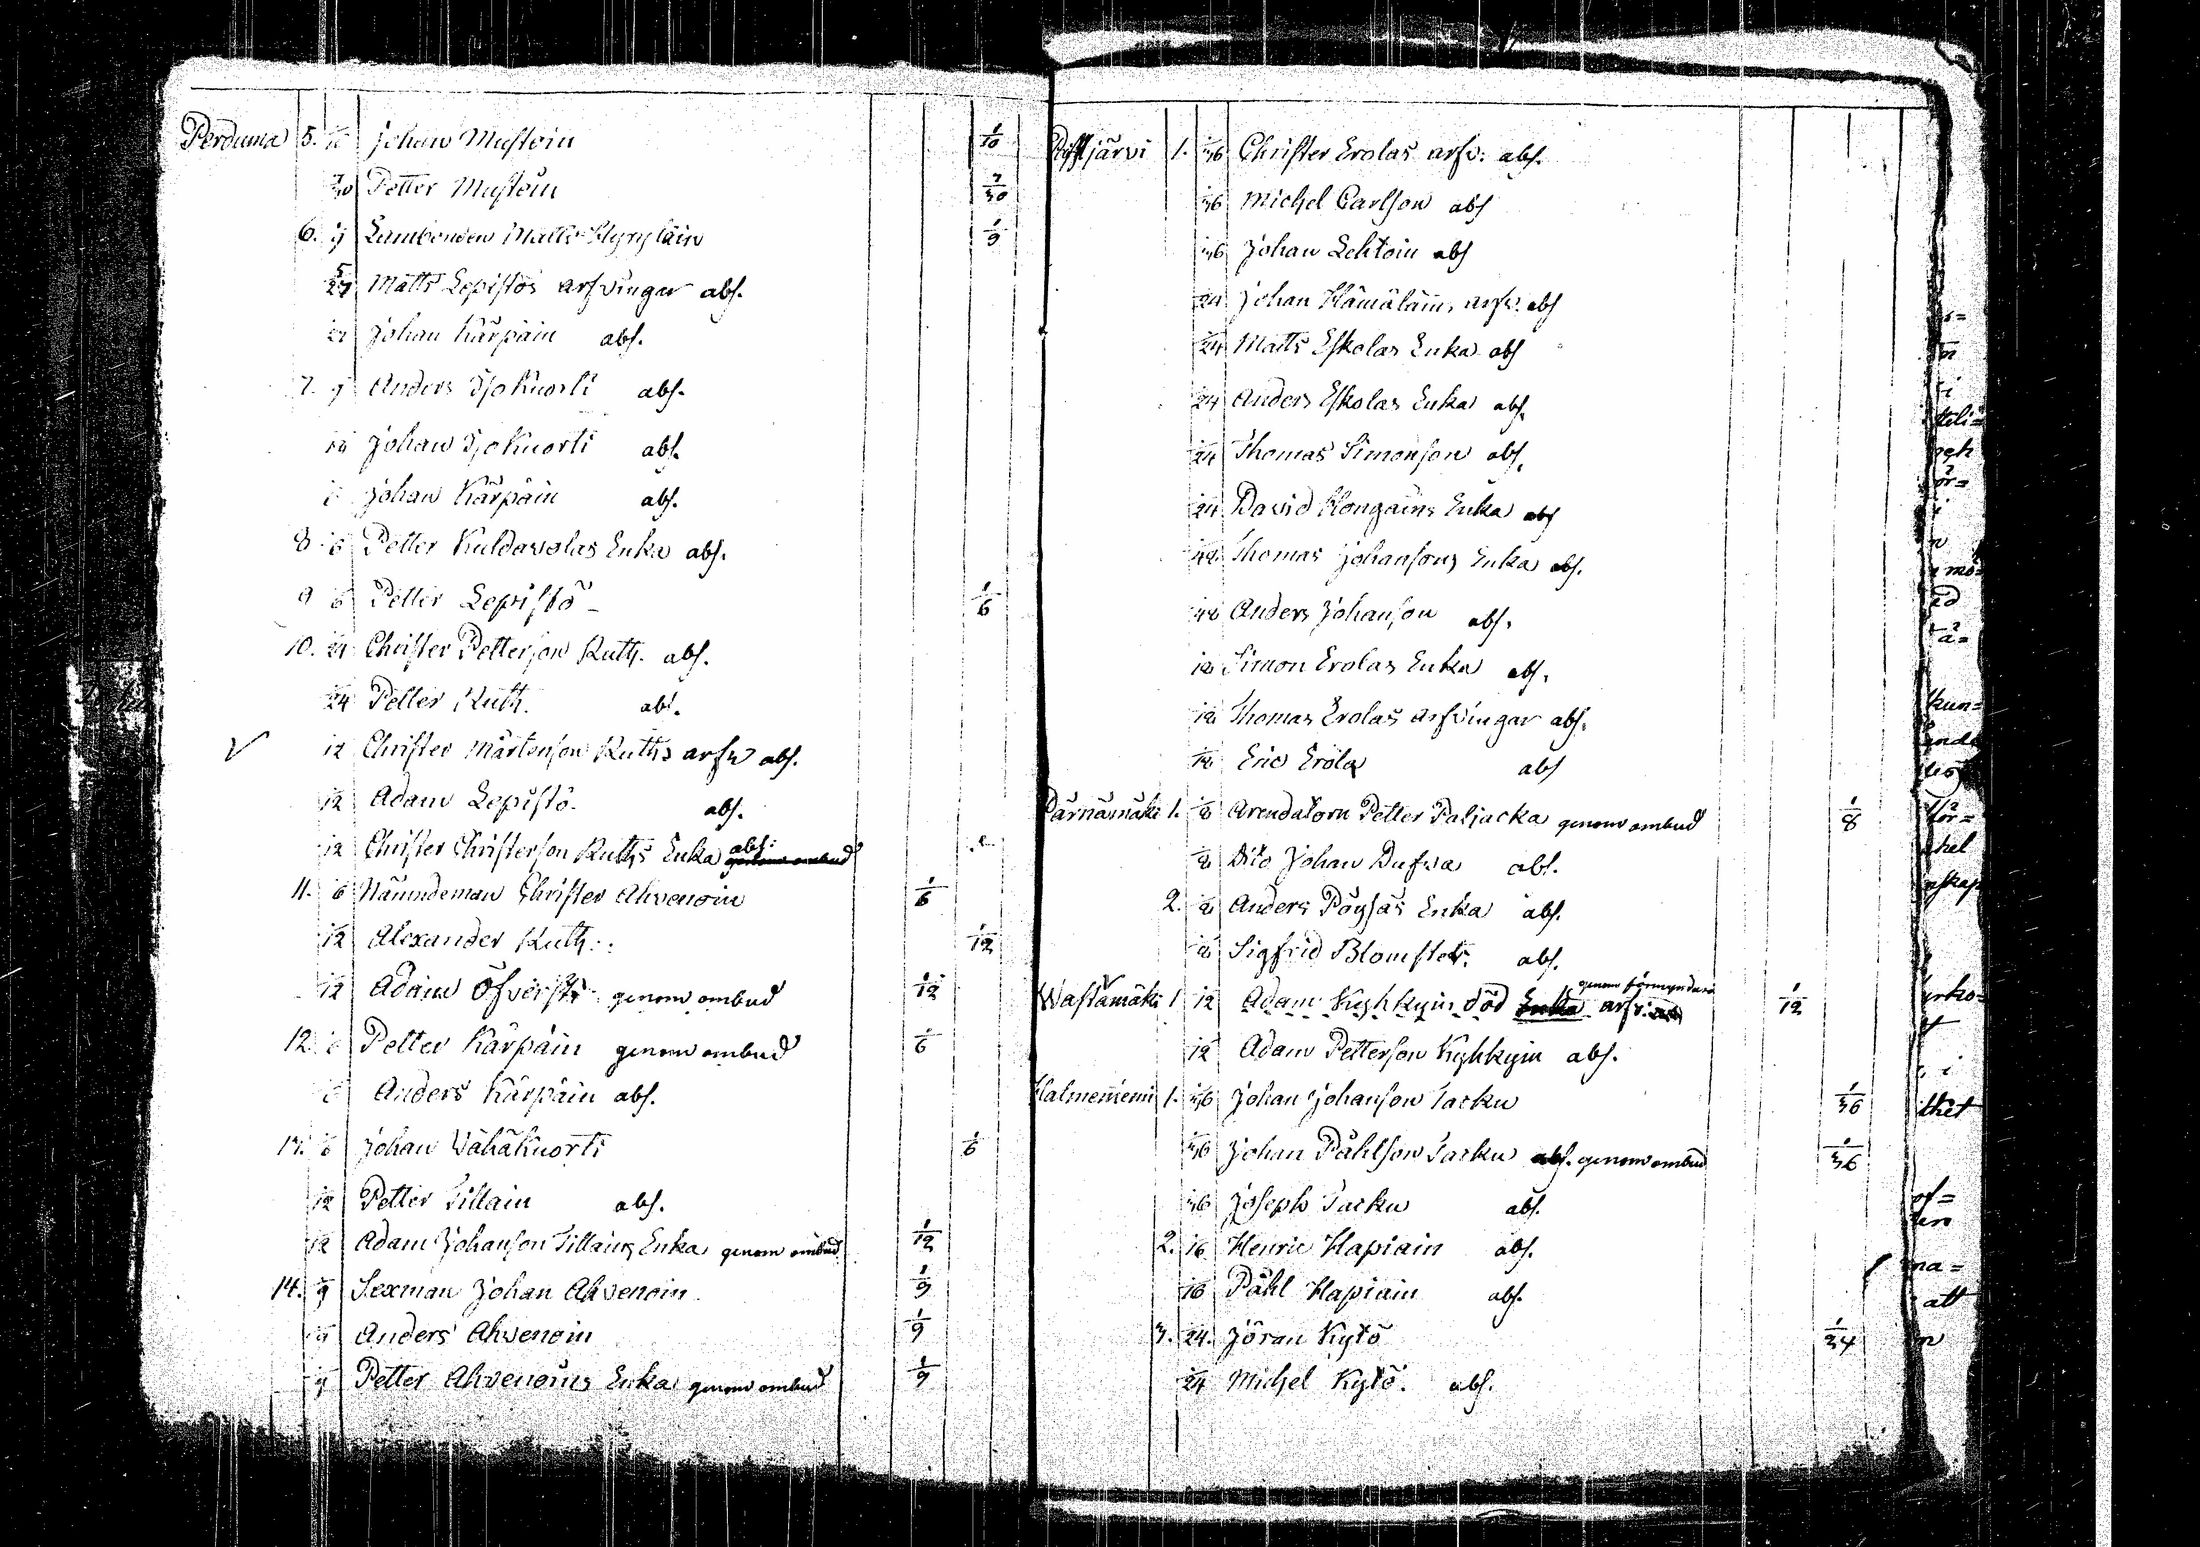 Perduma 5. 1/12 Johan Mustoin 1/10
7/30 Petter Mustoin 7/30
6. 1/9 Matts Hyryläin 1/9
5/27 Matts Lepistös arfvingar abs.
1/27 Johan Kärpäin abs.
7. 1/9 Anders IsoKuorti abs.
Johan IsoKuorti abs.
Johan Kärpäin abs.
8 1/6 Petter Enka abs.
9 1/6 Petter Lepistö 1/6
10. 1/24 Christer Petterson Ruth. abs.
1/24 Petter Ruth. abs.
1/12 Christer Mårtenson Ruths arfv abs.
1/12 Adam Lepistö. abs.
1/12 Christer Christerson Ruths Enka abs: genom ombud
11. 1/6 Nämndeman Christer Ahvenoin 1/6
1/12 Alexander Ruth. 1/12
1/12 Adam genom ombud 1/12
12. 1/6 Petter Kärpäin genom ombud 1/6
1/6 Anders Kärpäin abs.
13. 1/6 Johan WähäKuorti 1/6
1/12 Petter Tillain abs.
1/12 Adam Johanson Tillains Enka genom ombud 1/12
14. 1/9 Sexman Johan Ahvenoin 1/9
1/9 Anders Ahvenoin 1/9
1/9 Petter Ahvenoins Enka genom ombud 1/9
1. 1/36 Christer Erolas arfv: abs.
1/36 Michel Carlson abs
1/36 Johan Lehtoin abs
1/24 Johan Hämäläins arfv: abs
1/24 Matts Eskolas Enka abs
1/24 Anders Eskolas Enka abs.
1/24 Thomas Simonson abs.
1/24 David Hongains Enka abs
1/48 Thomas Johansons Enka abs.
1/48 Anders Johanson abs.
1/12 Simon Erolas Enka abs.
1/12 Thomas Erolas arfvingar abs.
1/12 Eric Erola abs
Pärnämäki 1. 1/8 Arendatorn Petter Paljacka genom ombud 1/8
1/8 Dito Johan Dufva abs.
2. 1/8 Anders Pöysäs Enka abs.
1/8 Sigfrid Blomster. abs.
Wastamäki 1 1/12 Adam Kyhkyin död Enka arfv: genom förmyndare 1/12
1/12 Adam Petterson Kyhkyin abs.
Halmeniemi 1. 1/36 Johan Johanson Tarku 1/36
1/36 Johan Påhlson Tarku abs. genom ombud 1/36
1/36 Joseph Tarku abs.
2. 1/16 Henric Hapiain abs.
1/16 Påhl Hapiain abs.
3. 1/24. Jöran Kytö 1/24
1/24 Michel Kytö. abs.